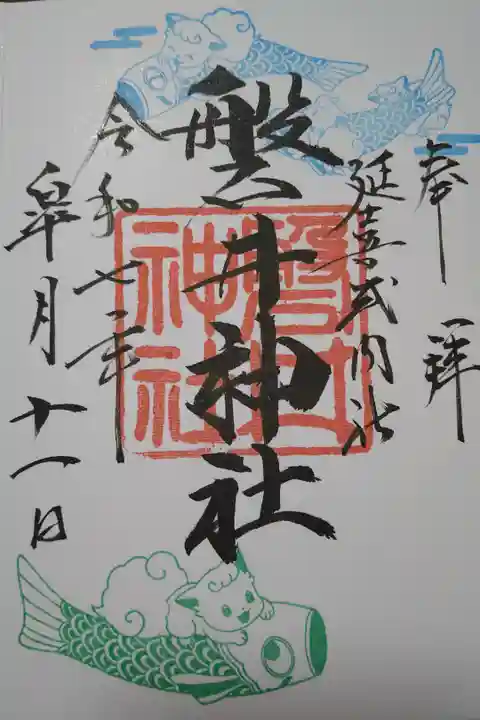 奉拝
延喜式内社
磐井神社
令和七年
皐月十一日
磐井
神社